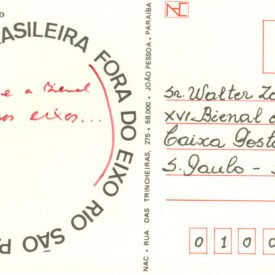 BRASILEIRA FORA DO EIXO RIO SÃO P
e a Bienal
os eixos...
NAC - RUA DAS TRINCHEIRAS, 275 - 58.000 - JOÃO PESSOA, PARAÍBA
NAC
Sr. Walter Za
XVI Bienal d
Caixa Posta
S. Paulo -
0 1 0 0